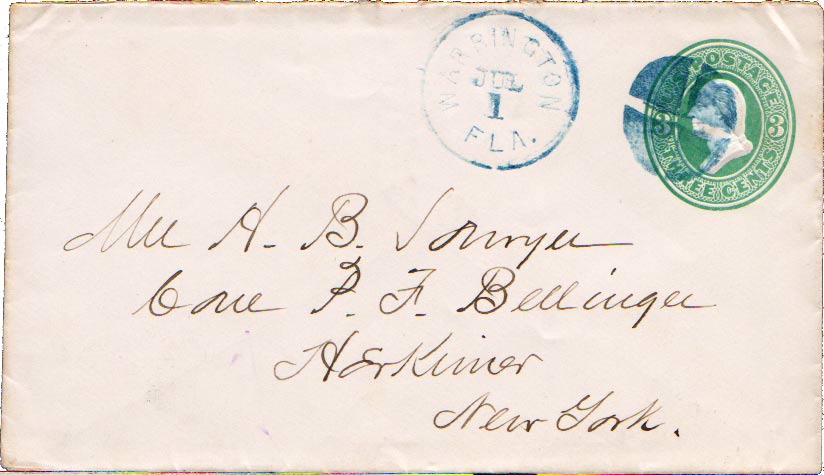 WARRINGTON
JUL
1
FLA.
U.S. POSTAGE
3 3
THREE CENTS
Mrs H. B. Sawyer
Care P. F. Bellinger
Herkimer
New York.